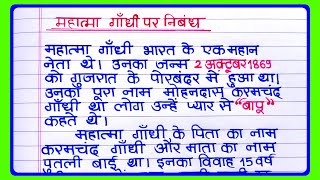 महात्मा गाँधी पर निबंध
महात्मा गाँधी भारत के एक महान
नेता थे। उनका जन्म 2 अक्टूबर 1869
को गुजरात के पोरबंदर में हुआ था।
उनका पूरा नाम मोहनदास करमचंद
गाँधी था लोग उन्हें प्यार से "बापू"
कहते थे।
महात्मा गाँधी के पिता का नाम
करमचंद गाँधी और माता का नाम
पुतली बाई था। इनका विवाह 15 वर्ष